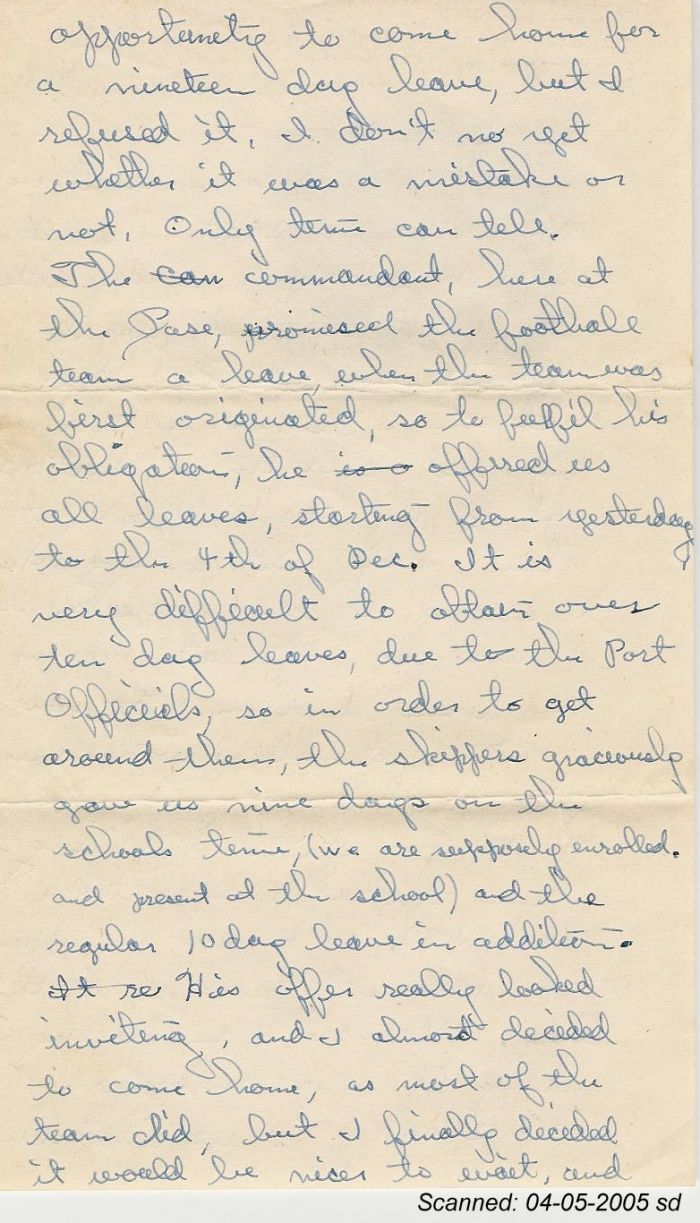 opportunity to come home for
a nineteen day leave, but I
refused it. I don't no yet
whether it was a mistake or
not. Only time can tell.
The can commandant, here at
the Base, promised the football
team a leave, when the team was
first originated, so to fulfil his
obligation, he is o offered us
all leaves, starting from yesterday
to the 4th of Dec. It is
very difficult to obtain over
ten day leaves, due to the Port
Officials, so in order to get
around them, the skippers graciously
gave us nine days on the
schools time, (we are supposely enrolled.
and present at the school) and the
regular 10 day leave in addition.
It re His offer really looked
inviting, and I almost decided
to come home, as most of the
team did, but I finally decided
it would be nicer to wait, and
Scanned: 04-05-2005 sd